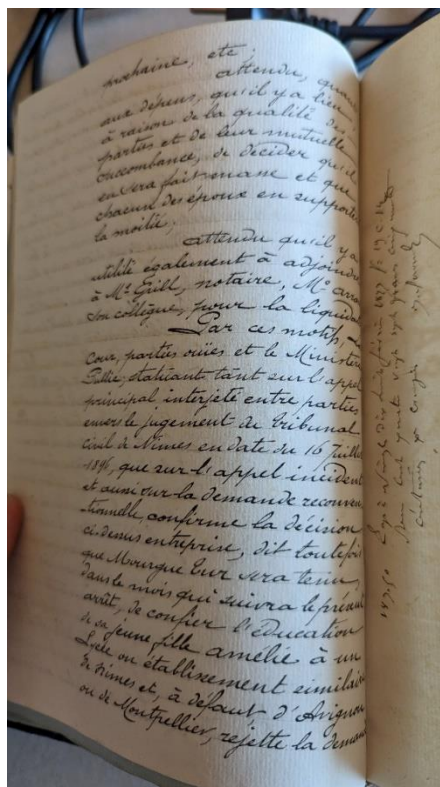 prochaine, etc;
attendu, quant
aux dépens, qu'il y a lieu
à raison de la qualité des
parties et de leur mutuelle
succombance, de décider qu'il
en sera fait masse et que
chacun des époux en supportera
la moitié;
attendu qu'il y a
utilité également à adjoindre
à Me Grill, notaire, Me
son collègue, pour la liquida
Par ces motifs, La
Cour, parties ouïes et le Ministère
Public, statuant tant sur l'appel
principal interjeté entre parties
envers le jugement du tribunal
civil de Nîmes en date du 16 Juillet
1896, que sur l'appel incident
et aussi sur la demande reconven
tionnelle, confirme la décision
ci-dessus entreprise, dit toutefois
que Mourgue Eur sera tenu,
dans le mois qui suivra le présent
arrêt, de confier l'éducation
de sa jeune fille amélie à un
Lycée ou établissement similaire
de Nîmes et, à défaut d'Avignon
ou de Montpellier, rejette la demande
187.50 Enregistré à Nîmes le février 1897